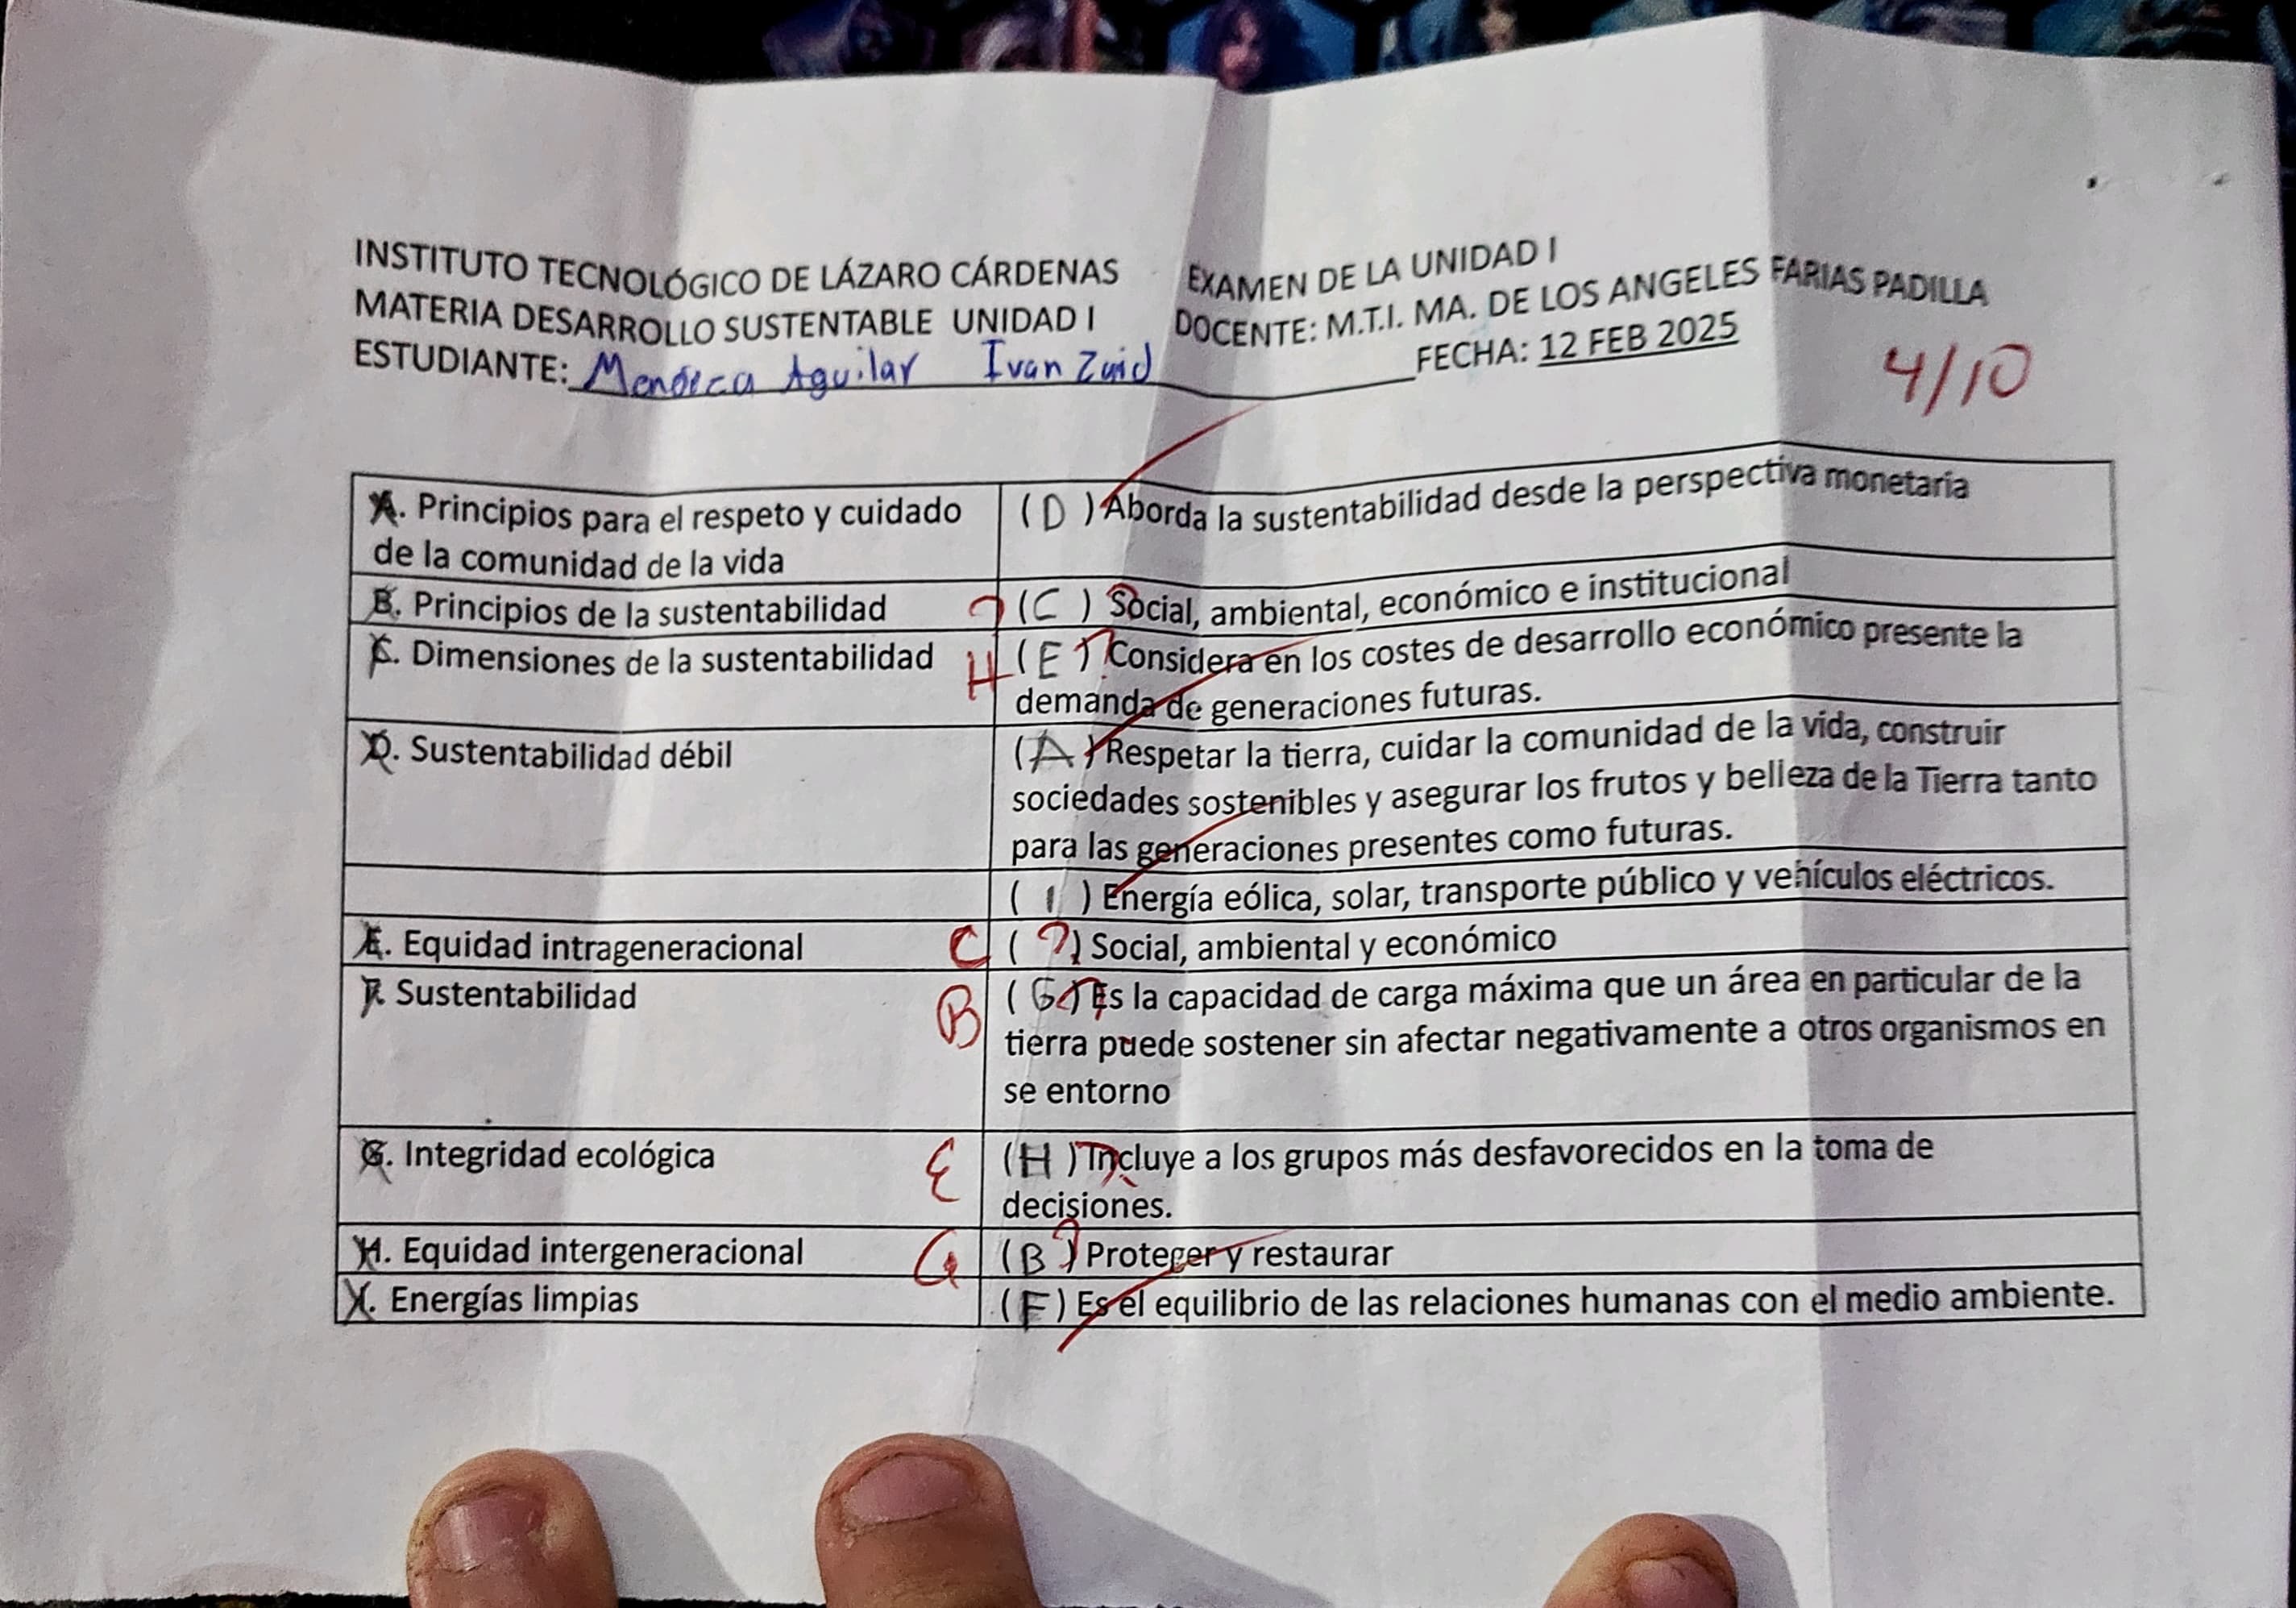 INSTITUTO TECNOLÓGICO DE LÁZARO CÁRDENAS EXAMEN DE LA UNIDAD I
MATERIA DESARROLLO SUSTENTABLE UNIDAD I DOCENTE: M.T.I. MA. DE LOS ANGELES FARIAS PADILLA
ESTUDIANTE: Mendoza Aguilar Ivan Zuid FECHA: 12 FEB 2025
4/10
A. Principios para el respeto y cuidado
de la comunidad de la vida
(D) Aborda la sustentabilidad desde la perspectiva monetaria
B. Principios de la sustentabilidad
(C) Social, ambiental, económico e institucional
C. Dimensiones de la sustentabilidad
H (E) Considera en los costes de desarrollo económico presente la
demanda de generaciones futuras.
D. Sustentabilidad débil
(A) Respetar la tierra, cuidar la comunidad de la vida, construir
sociedades sostenibles y asegurar los frutos y belleza de la Tierra tanto
para las generaciones presentes como futuras.
(I) Energía eólica, solar, transporte público y vehículos eléctricos.
E. Equidad intrageneracional
C ( ) Social, ambiental y económico
F. Sustentabilidad
B (G) Es la capacidad de carga máxima que un área en particular de la
tierra puede sostener sin afectar negativamente a otros organismos en
se entorno
G. Integridad ecológica
E (H) Incluye a los grupos más desfavorecidos en la toma de
decisiones.
H. Equidad intergeneracional
G (B) Proteger y restaurar
I. Energías limpias
(F) Es el equilibrio de las relaciones humanas con el medio ambiente.